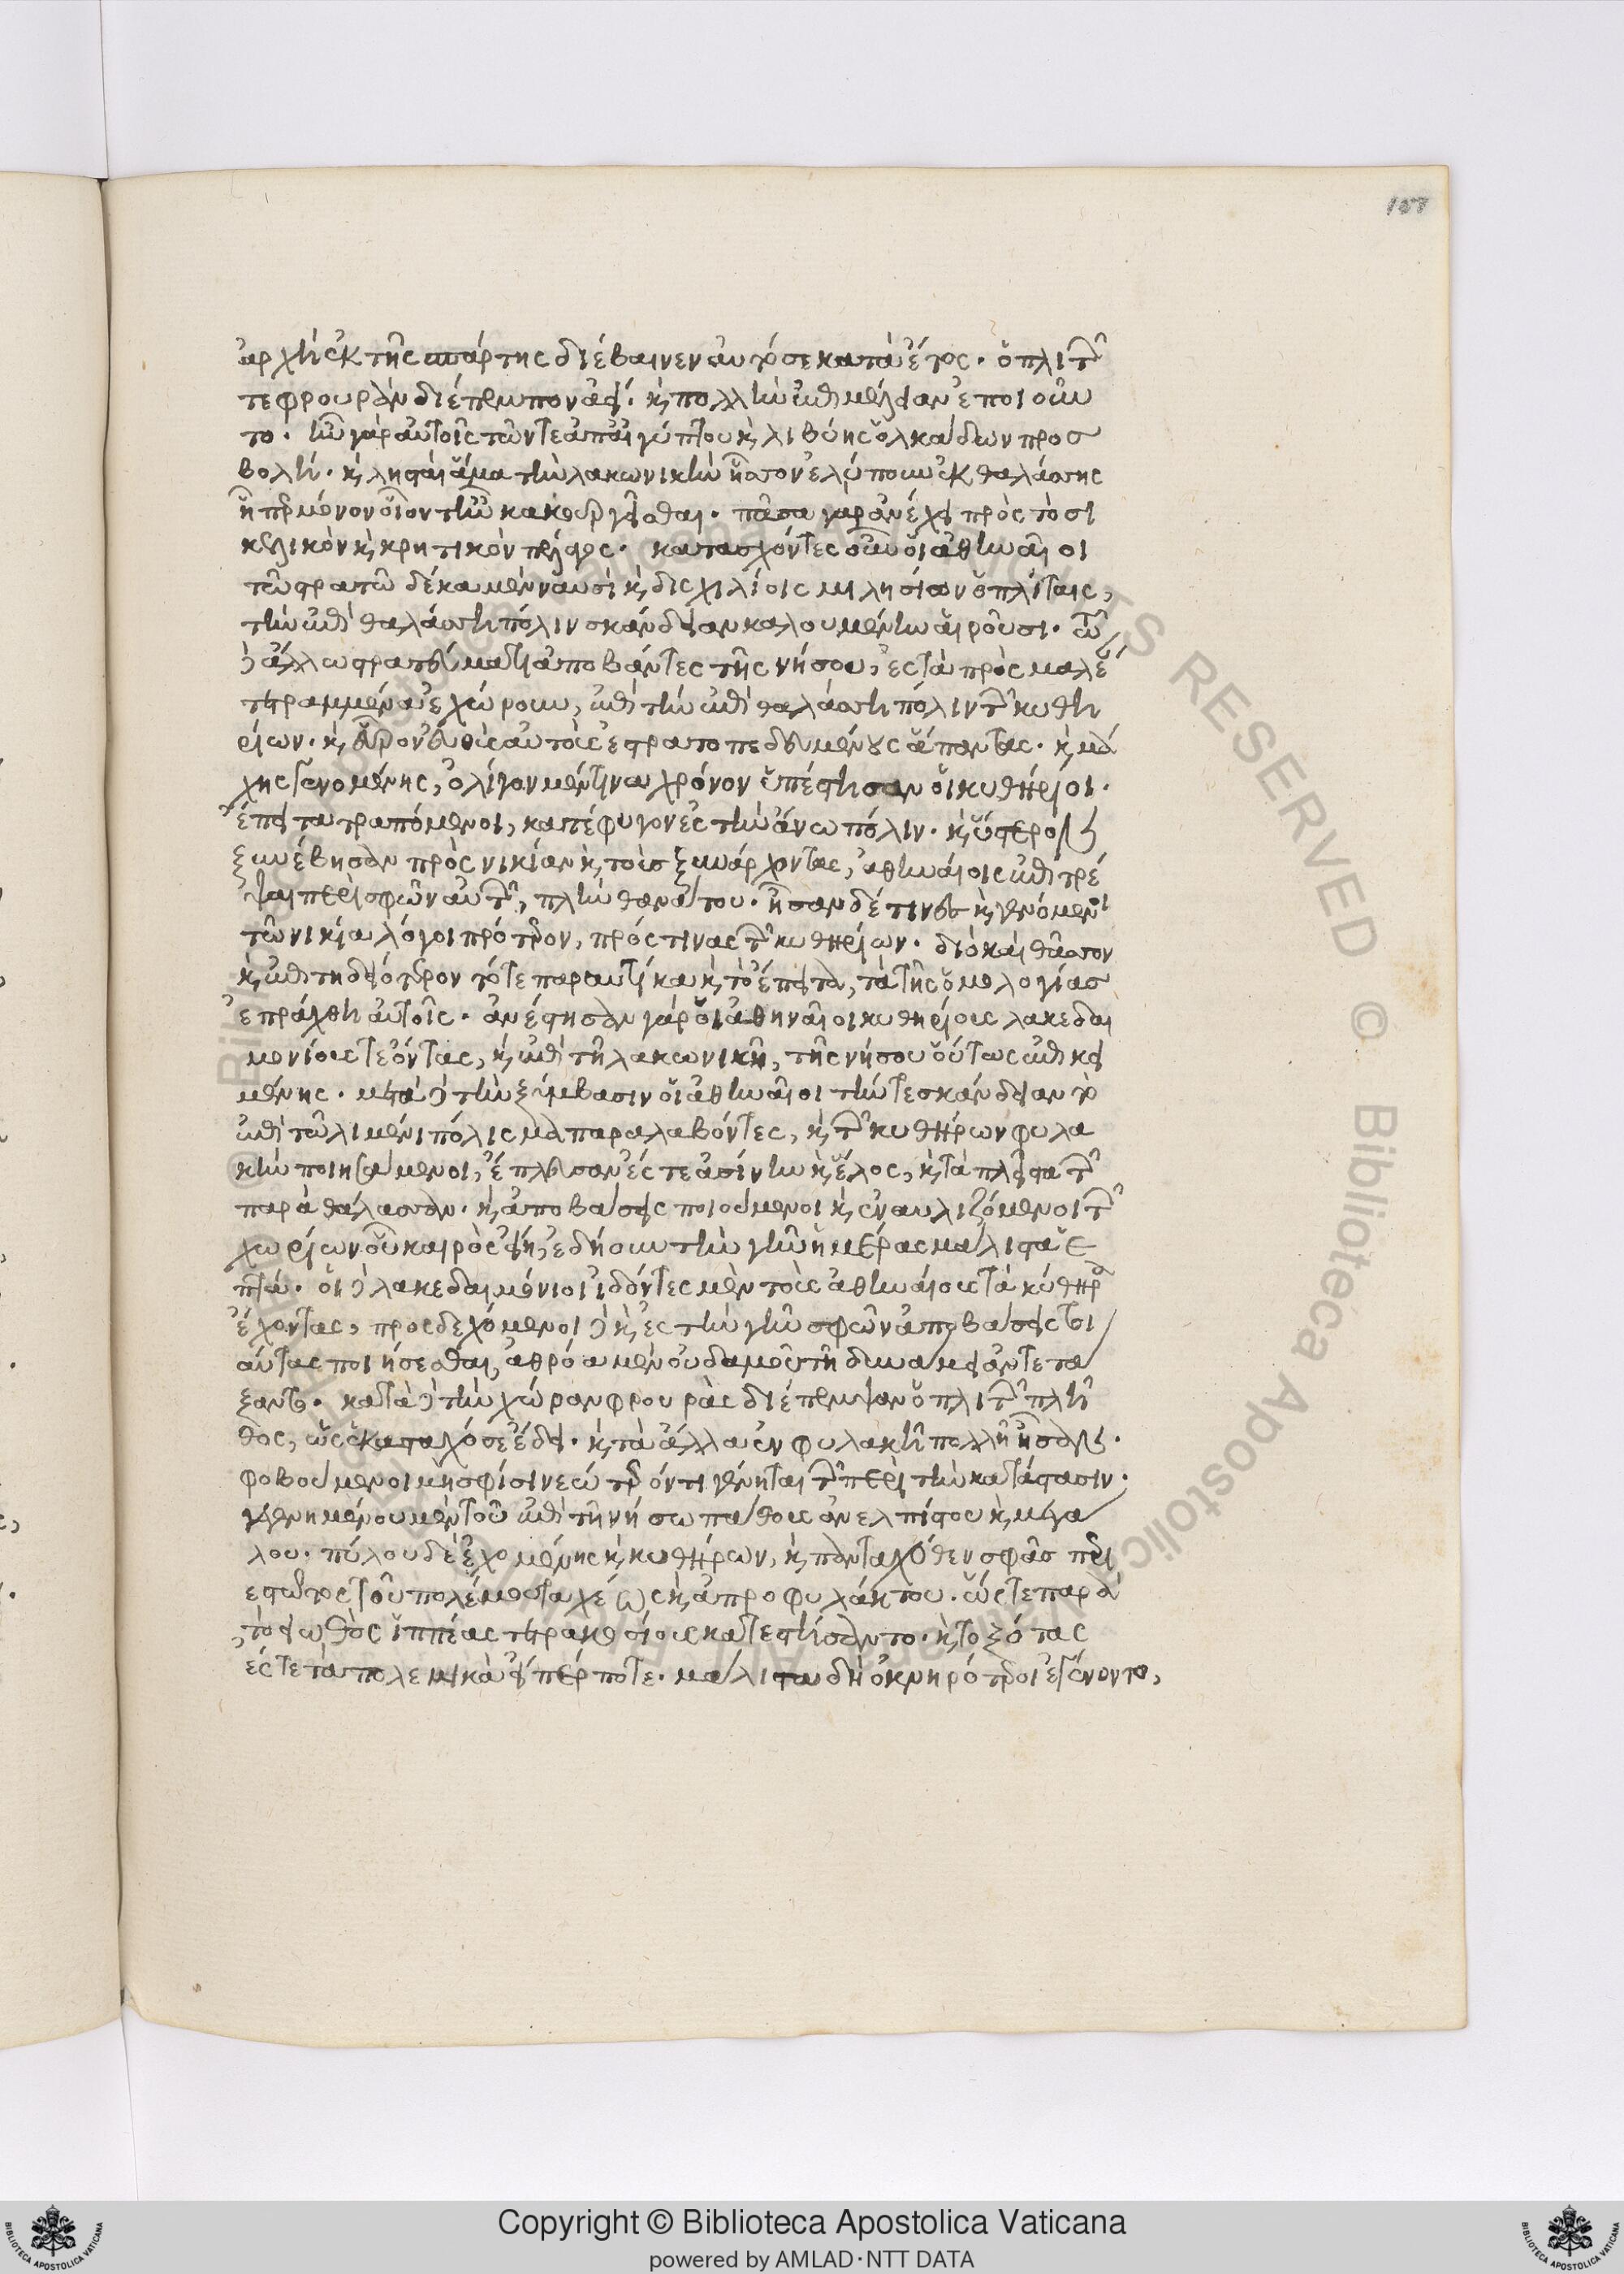 107
ἀρχὴ ἐκ τῆς σπάρτης διέβαινεν αὐτόσε κατὰ ἔτος. ὁπλιτῶν
τε φρουρὰν διέπεμπον ἀεί. καὶ πολλὴν ἐπιμέλειαν ἐποιοῦν
το. ἦν γὰρ αὐτοῖς τῶν τε ἀπ' αἰγύπτου καὶ λιβύης ὁλκάδων προσ
βολή. καὶ λῃσταὶ ἅμα τὴν λακωνικὴν ἧσσον ἐλύπουν ἐκ θαλάσσης
ᾗπερ μόνον οἷόν τ' ἦν κακουργεῖσθαι. πᾶσα γὰρ ἀνέχει πρὸς τὸ σι
κελικὸν καὶ κρητικὸν πέλαγος. κατασχόντες οὖν οἱ ἀθηναῖοι
τῷ στρατῷ δέκα μὲν ναυσὶ καὶ δισχιλίοις μιλησίων ὁπλίταις,
τὴν ἐπὶ θαλάσσῃ πόλιν σκάνδειαν καλουμένην αἱροῦσι. τῷ
δὲ ἄλλω στρατεύματι ἀποβάντες τῆς νήσου, ἐς τὰ πρὸς μαλέαν
τετραμμένα ἐχώρουν, ἐπὶ τὴν ἐπὶ θαλάσσῃ πόλιν τῶν κυθη
ρίων. καὶ εὗρον εὐθὺς αὐτοὺς ἐστρατοπεδευμένους ἅπαντας. καὶ μά
χης γενομένης, ὀλίγον μέν τινα χρόνον ὑπέστησαν οἱ κυθήριοι.
ἔπειτα τραπόμενοι, κατέφυγον ἐς τὴν ἄνω πόλιν. καὶ ὕστερον
ξυνέβησαν πρὸς νικίαν καὶ τοὺς ξυνάρχοντας, ἀθηναίοις ἐπιτρέ
ψαι περὶ σφῶν αὐτῶν, πλὴν θανάτου. ἦσαν δέ τινες καὶ γενόμενοι
τῶ νικία λόγοι πρότερον, πρός τινας τῶν κυθηρίων. διὸ καὶ θᾶσσον
καὶ ἐπιτηδειότερον τό τε παραυτίκα καὶ τὸ ἔπειτα, τὰ τῆς ὁμολογίας
ἐπράχθη αὐτοῖς. ἀνέστησαν γὰρ οἱ ἀθηναῖοι κυθηρίους λακεδαι
μονίους τε ὄντας, καὶ ἐπὶ τῇ λακωνικῇ, τῆς νήσου οὕτως ἐπικει
μένης. μετὰ δὲ τὴν ξύμβασιν οἱ ἀθηναῖοι τήν τε σκάνδειαν τὸ
ἐπὶ τῷ λιμένι πόλισμα παραλαβόντες, καὶ τῶν κυθήρων φυλα
κὴν ποιησάμενοι, ἔπλευσαν ἔς τε ἀσίνην καὶ ἕλος, καὶ τὰ πλεῖστα τῶν
παρὰ θάλασσαν. καὶ ἀποβάσεις ποιούμενοι καὶ ἐναυλιζόμενοι τῶν
χωρίων οὗ καιρὸς εἴη, ἐδήουν τὴν γῆν ἡμέρας μάλιστα ἑ
πτά. οἱ δὲ λακεδαιμόνιοι ἰδόντες μὲν τοὺς ἀθηναίους τὰ κύθηρα
ἔχοντας, προσδεχόμενοι δὲ καὶ ἐς τὴν γῆν σφῶν ἀποβάσεις τοι
αύτας ποιήσεσθαι, ἀθρόα μὲν οὐδαμοῦ τῇ δυνάμει ἀντετά
ξαντο. κατὰ δὲ τὴν χώραν φρουρὰς διέπεμψαν ὁπλιτῶν πλῆ
θος, ὡς ἑκασταχόσε ἔδει. καὶ τὰ ἄλλα ἐν φυλακῇ πολλῇ ἦσαν.
φοβούμενοι μὴ σφίσι νεώτερόν τι γένηται τῶν περὶ τὴν κατάστασιν.
γεγενημένου μὲν τοῦ ἐπὶ τῇ νήσω πάθους ἀνελπίστου καὶ μεγά
λου. πύλου δὲ ἐχομένης καὶ κυθήρων, καὶ πανταχόθεν σφᾶς περι
εστῶτος τοῦ πολέμου ταχέως καὶ ἀπροφυλάκτου. ὥστε παρὰ
τὸ εἰωθὸς ἱππέας τετρακοσίους κατεστήσαντο. καὶ τοξότας
ἔς τε τὰ πολεμικὰ εἴπερ ποτε. μάλιστα δὴ ὀκνηρότεροι ἐγένοντο,
Copyright © Biblioteca Apostolica Vaticana
powered by AMLAD·NTT DATA